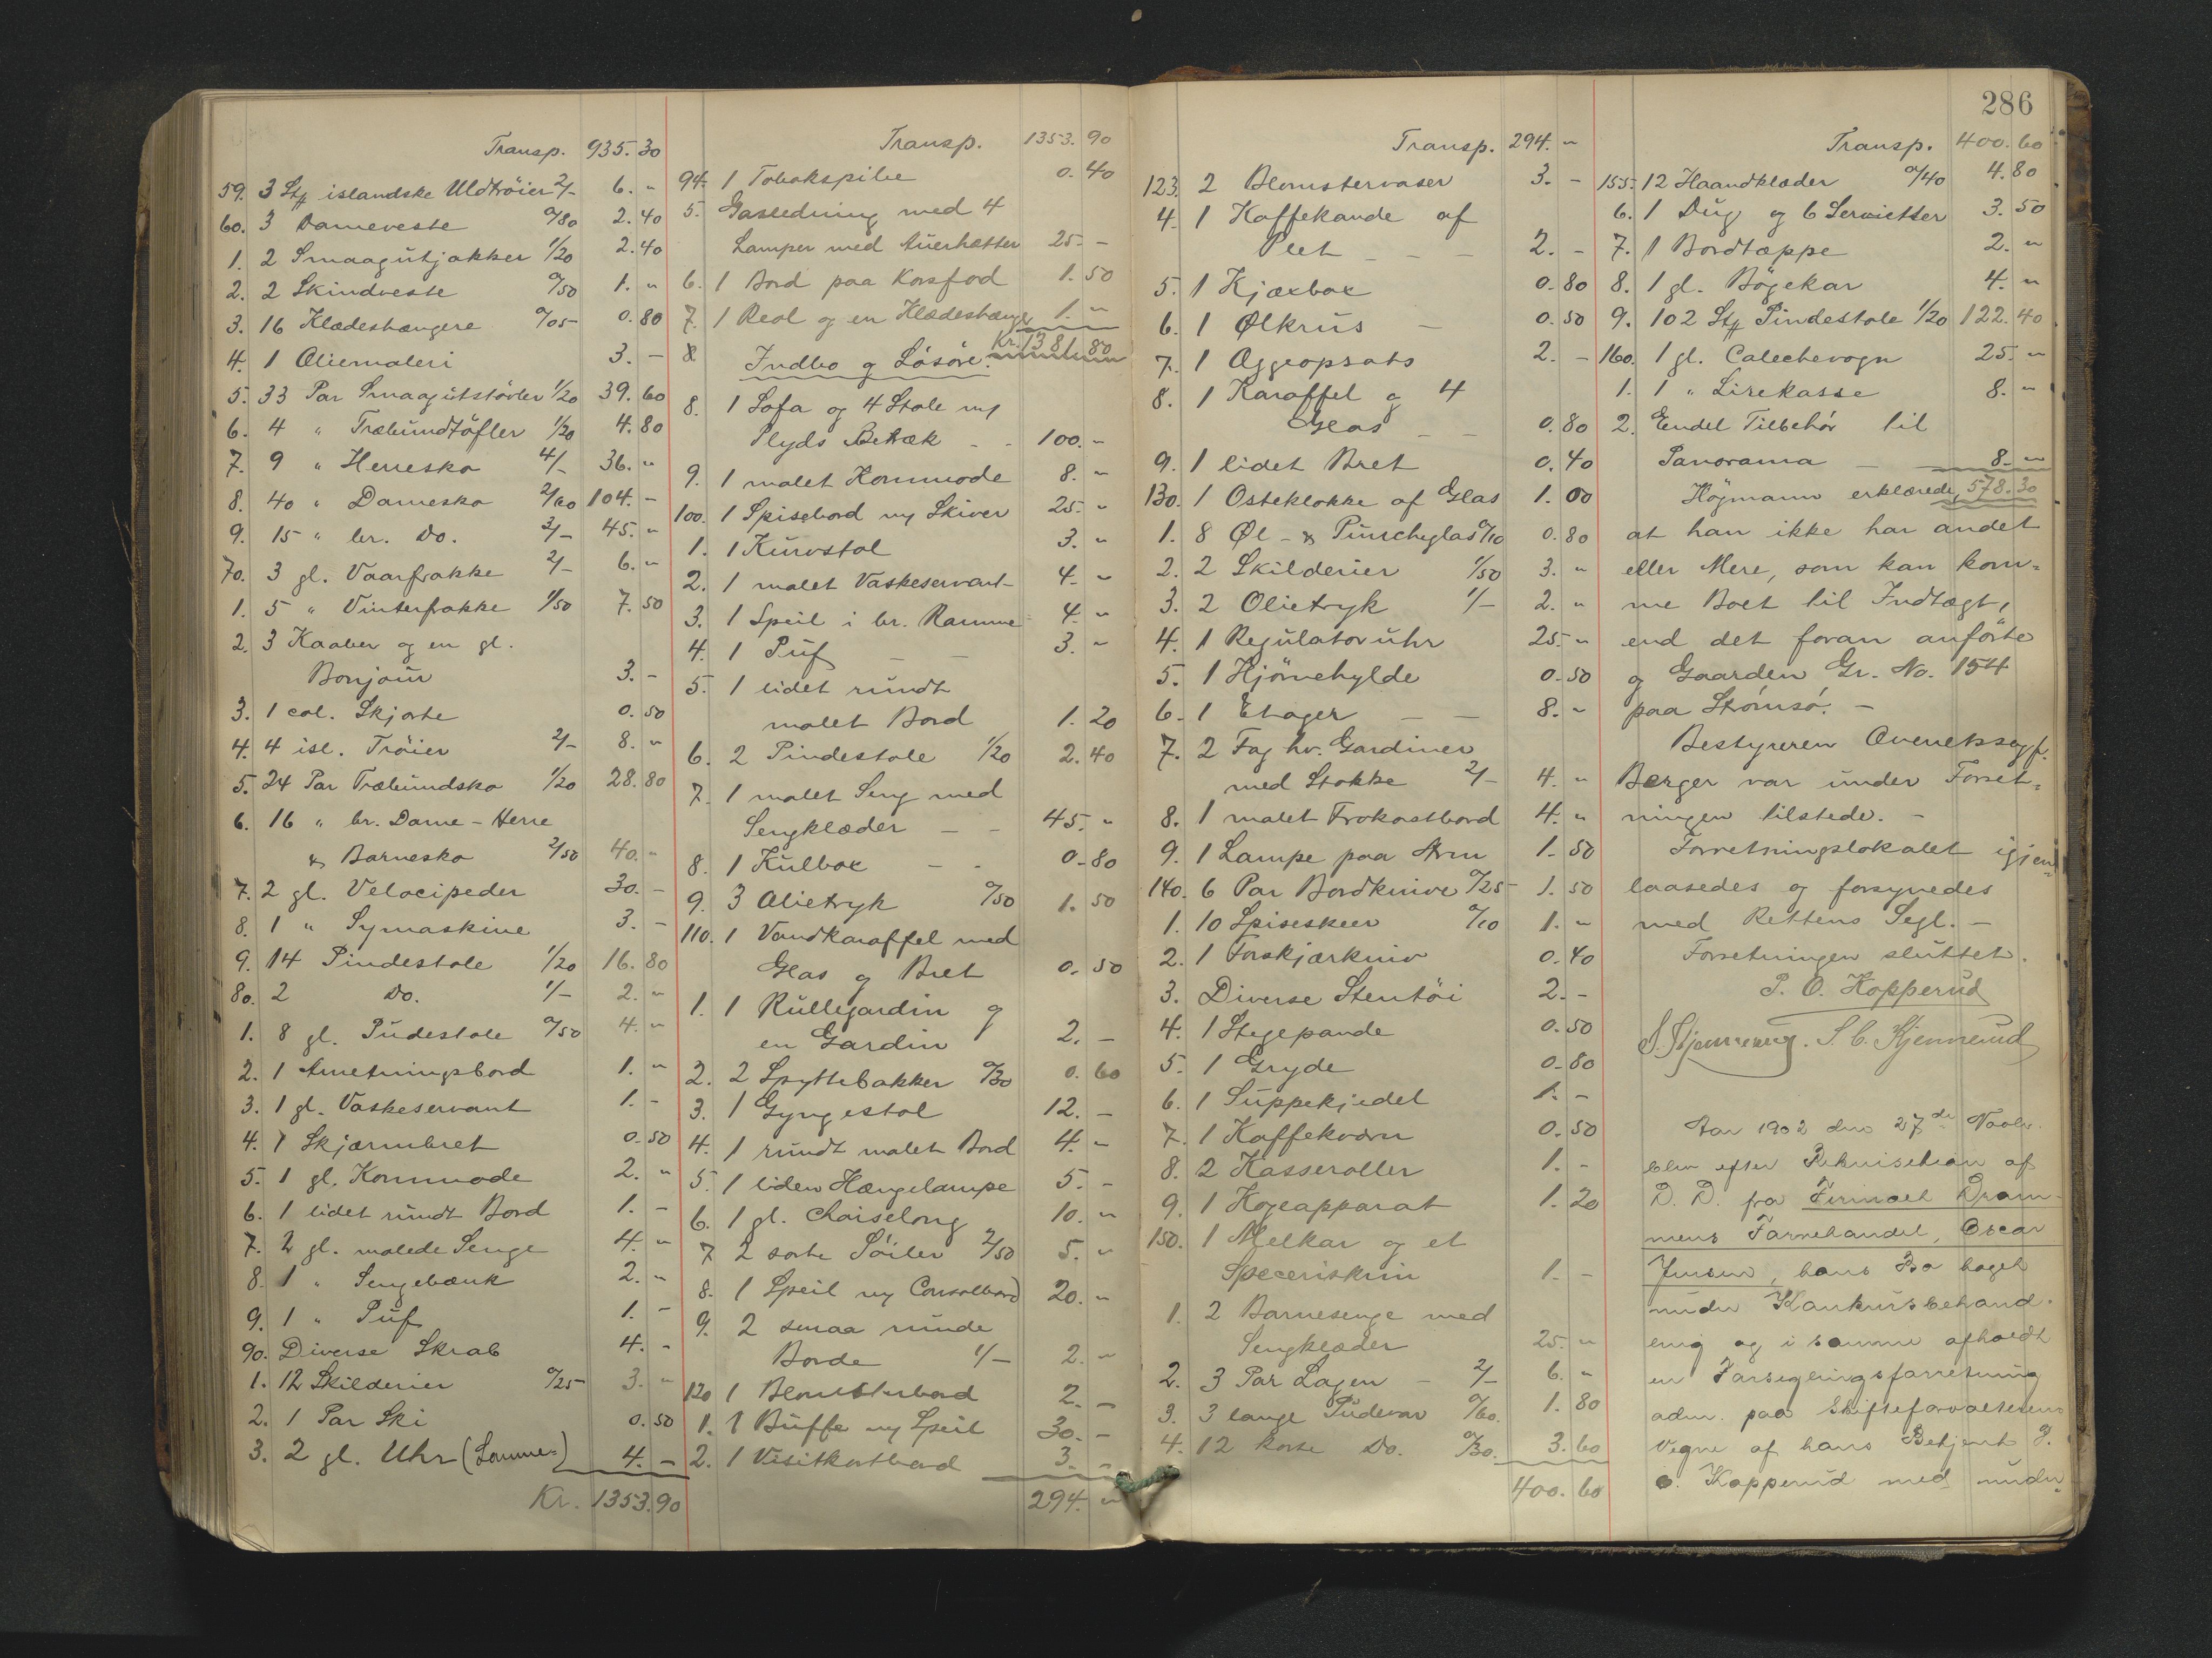 Transp. 935.30
59. 3 Stk islandske Uldtröier 2/- 6. "
60. 3 Dameveste 0/80 2.40
1. 2 Smaagutjakker 1/20 2.40
2. 2 Skindveste 0/50 1. "
3. 16 Klædeshængere 0/05 0.80
4. 1 Oliemaleri 3. -
5. 33 Par Smaagutstövler 1/20 39.60
6. 4 " Træbundtöfler 1/20 4.80
7. 9 " Herresko 4/- 36. "
8. 40 " Damesko 2/60 104. -
9. 15 " br. Do. 3/- 45. "
70. 3 gl. Vaarfrakke 2/- 6. "
1. 5 " Vinterfrakke 1/50 7.50
2. 3 Kaaber og en gl.
Bonjour 3. -
3. 1 col. Skjorte 0.50
4. 4 isl. Tröier 2/- 8. "
5. 24 Par Træbundsko 1/20 28.80
6. 16 " br. Dame - Herre
& Barnesko 2/50 40. -
7. 2 gl. Velocipeder 30. -
8. 1 " Symaskine 3. -
9. 14 Pindestole 1/20 16.80
80. 2 Do. 1/- 2. "
1. 8 gl. Pindestole 0/50 4. "
2. 1 Anretningsbord 1. "
3. 1 gl. Vaskeservant 1. -
4. 1 Skjærmbret 0.50
5. 1 gl. Kommode 2. "
6. 1 lidet rundt Bord 1. -
7. 2 gl. malede Senge 4. "
8. 1 " Sengebænk 2. "
9. 1 " Puf 1. -
90. Diverse Skrab 4. -
1. 12 Skilderier 0/25 3. "
2. 1 Par Ski 0.50
3. 2 gl. Uhr (Lomme-) 4. -
Kr. 1353.90
Transp. 1353.90
94. 1 Tobakspibe 0.40
5. Gasledning med 4
Lamper med Auerhætter 25. -
6. 1 Bord paa Korsfod 1.50
7. 1 Reol og en Klædeshænger 1. "
Kr. 1381.80
8. Indbo og Lösöre.
8. 1 Sofa og 4 Stole m/
Plyds Betræk - - 100. "
9. 1 malet Kommode 8. "
100. 1 Spisebord m/ Skiver 25. "
1. 1 Kurvstol 3. "
2. 1 malet Vaskeservant 4. "
3. 1 Speil i br. Ramme 4. "
4. 1 Puf - - 3. "
5. 1 lidet rundt
malet Bord 1.20
6. 2 Pindestole 1/20 2.40
7. 1 malet Seng med
Sengklæder - - 45. "
8. 1 Kulbox - - 0.80
9. 3 Olietryk 0/50 1.50
110. 1 Vandkaraffel med
Glas og Bret 0.50
1. 1 Rullegardin og
en Gardin 2. -
2. 2 Spyttebakker 0/30 0.60
3. 1 Gyngestol 12. -
4. 1 rundt malet Bord 4. -
5. 1 liden Hængelampe 5. -
6. 1 gl. Chaiselong 10. "
7 2 sorte Söiler 2/50 5. "
8. 1 Speil m/ Consolbord 20. "
9. 2 smaa runde
Borde 1/- 2. "
120 1 Blomsterbord 2. -
1. 1 Buffe m/ Speil 30. -
2. 1 Visitkortbord 3. -
294. "
Transp. 294. "
123. 2 Blomstervaser 3. -
4. 1 Kaffekande af
Plet - - - 2. -
5. 1 Kjæxbox 0.80
6. 1 Ølkrus - 0.50
7. 1 Æggeopsats 2. -
8. 1 Karaffel og 4
Glas - - 0.80
9. 1 lidet Bret 0.40
130. 1 Osteklokke af Glas 1.00
1. 8 Øl- & Punscheglas 0/10 0.80
2. 2 Skilderier 1/50 3. "
3. 2 Olietryk 1/- 2. "
4. 1 Regulatoruhr 25. "
5. 1 Hjörnehylde 0.50
6. 1 Etager - - 8. "
7. 2 Fag hv. Gardiner
med Stokke 2/- 4. "
8. 1 malet Frokostbord 4. "
9. 1 Lampe paa Arm 1.50
140. 6 Par Bordknive 0/25 1.50
1. 10 Spiseskeer 0/10 1. "
2. 1 Forskjærkniv 0.40
3. Diverse Stentöi 2. -
4. 1 Stegepande 0.50
5. 1 Gryde 0.80
6. 1 Suppekjedel 1. -
7. 1 Kaffekværn 0.50
8. 2 Kasseroller 1. -
9. 1 Kogeapparat 1.20
150. 1 Melkar og et
Speceriskrin 1. -
1. 2 Barnesenge med
Sengklæder 25. "
2. 3 Par Lagen - 2/- 6. "
3. 3 lange Pudevar 0/60. 1.80
4. 12 korte Do. 0/30. 3.60
400.60
286
Transp. 400.60
155. 12 Haandklæder 0/40 4.80
6. 1 Dug og 6 Servietter 3.50
7. 1 Bordtæppe 2. "
8. 1 gl. Bögekar 4. "
9. 102 Stk Pindestole 1/20 122.40
160. 1 gl. Calechevogn 25. "
1. 1 " Lirekasse 8. "
2. Endel Tilbehör til
Panorama - 8. "
Högmann erklærede, 578.30
at han ikke har andet
eller Mere, som kan kom-
me Boet til Indtægt,
end det foran anförte
og Gaarden Gr. No. 154
paa Strömsö. -
Bestyreren Overretssagf.
Berger var under Forret-
ningen tilstede. -
Forretningslokalet igjen-
laasedes og forsynedes
med Rettens Segl. -
Forretningen sluttet.
P. O. Kopperud
S. C. Stjernerud
Aar 1902 den 27de Novbr.
blev efter Rekvisition af
D. D. fra Firmaet Dram-
mens Farvehandel, Oscar
Jensen, hans Bo taget
under Konkursbehand-
ling og i samme afholdt
en Forseglingsforretning
adm. paa Skifteforvalterens
Vegne af hans Betjent P.
O. Kopperud med under-